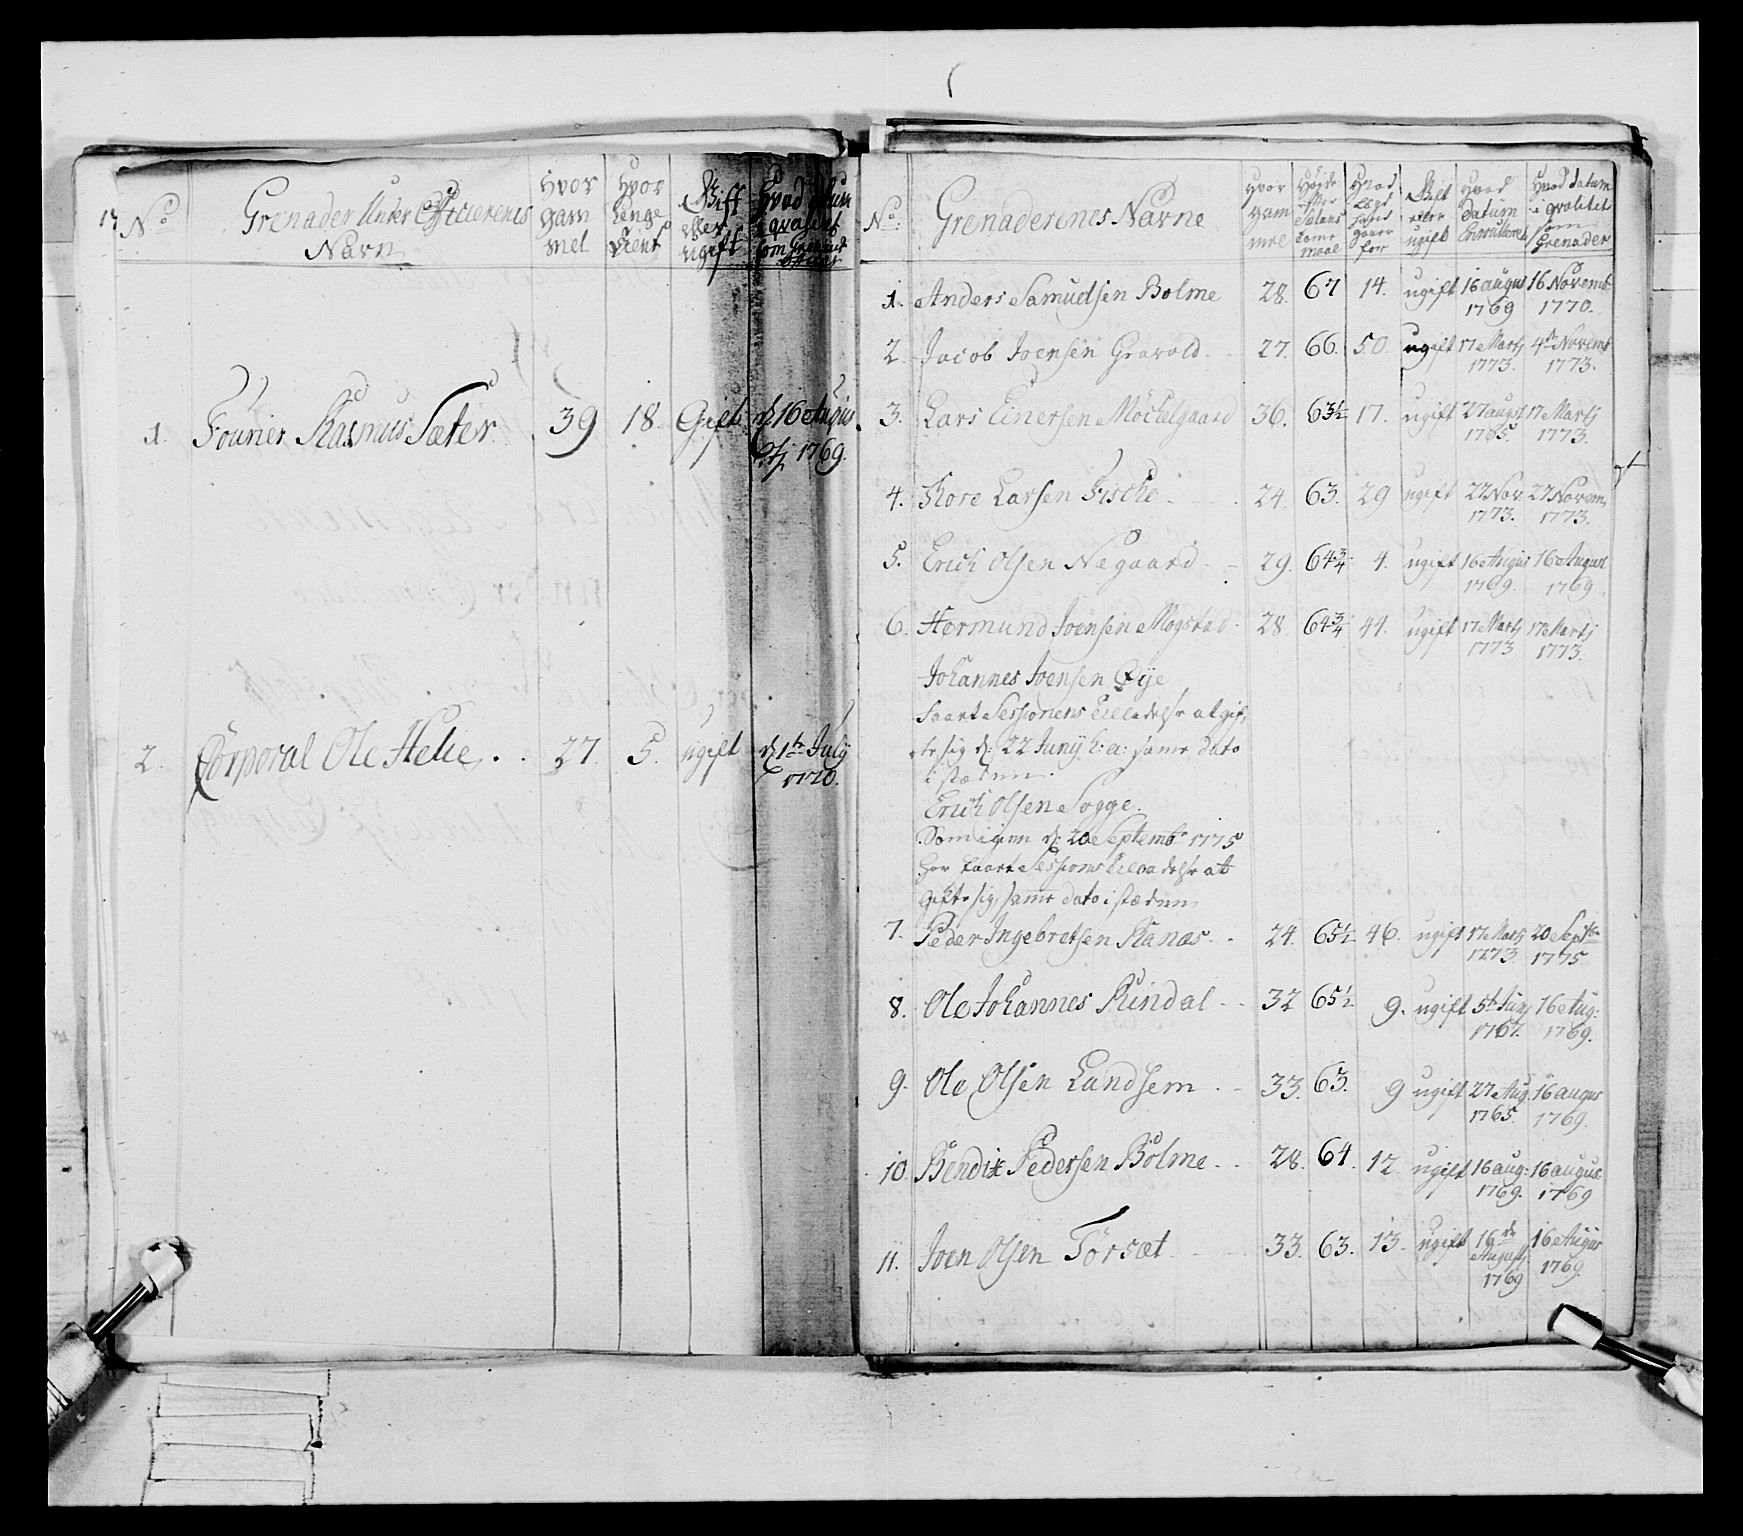 No
Grenader Under Officierenes
Navn
Hvor
gam
mel
Hvor
lenge
tient
Gift
eller
ugift
Hvad datum
i qvalitet
som Grenader
1. Fourier Rasmus Sæter 39 18. Gift d 16 August
1769.
2. Corporal Ole Helie 27. 5. ugift d 1te July
1770.
No
Grenaderenes Navne
Hvor
gam
mel
Høyde
efter
maal
Hvad
Lægd
for
Gift
eller
ugift
Hvad
datum
Hvad datum
i qvalitet
som
Grenader
1. Anders Samuelsen Bolme 28. 67 14. ugift 16 augus 16 Novemb
1769 1770.
2. Jacob Joensen Gravold 27. 66. 50. ugift 17 Martj 4de Novemb
1773. 1773.
3. Lars Einersen Möckelgaard 36. 63½ 17. ugift 27 augst 17 Martj
1765. 1773.
4. Tore Larsen Fiske 24. 63. 29 ugift 27 Nov. 27 Novem
1773. 1773.
5. Erich Olsen Negaard 29. 64¾ 4. ugift 16 Augus 16 August
1769. 1769
6. Hermund Joensen Mogstad 28. 64¾ 44. ugift 17 Martj 17 Martj
1773 1773.
Johannes Joensen Øye
faaet Sessionens Tilladelse at gif
te sig d: 22 Junij h: a: samme dato
i stæden.
Erich Olsen Sogge.
Som igien d: 20 Septemb 1775
har faaet Sessions Tilladelse at
gifte sig, samme dato i stæden
7. Peder Ingebretsen Ranæs 24. 65½ 46. ugift 17 Martj 20 Septbr
1773. 1775
8. Ole Johannes Rindal 32 65½ 9. ugift 5te Junj 16 Aug:
1767. 1769.
9. Ole Olsen Landsem 33. 63. 9 ugift 27 Aug. 16 augus
1765. 1769.
10 Bendix Pedersen Bolme 28. 64. 12 ugift 16 aug: 16 augus.
1769. 1769
11. Joen Olsen Torsæt 33. 63. 13. ugift 16de
August 16 Augus
1769 1769.